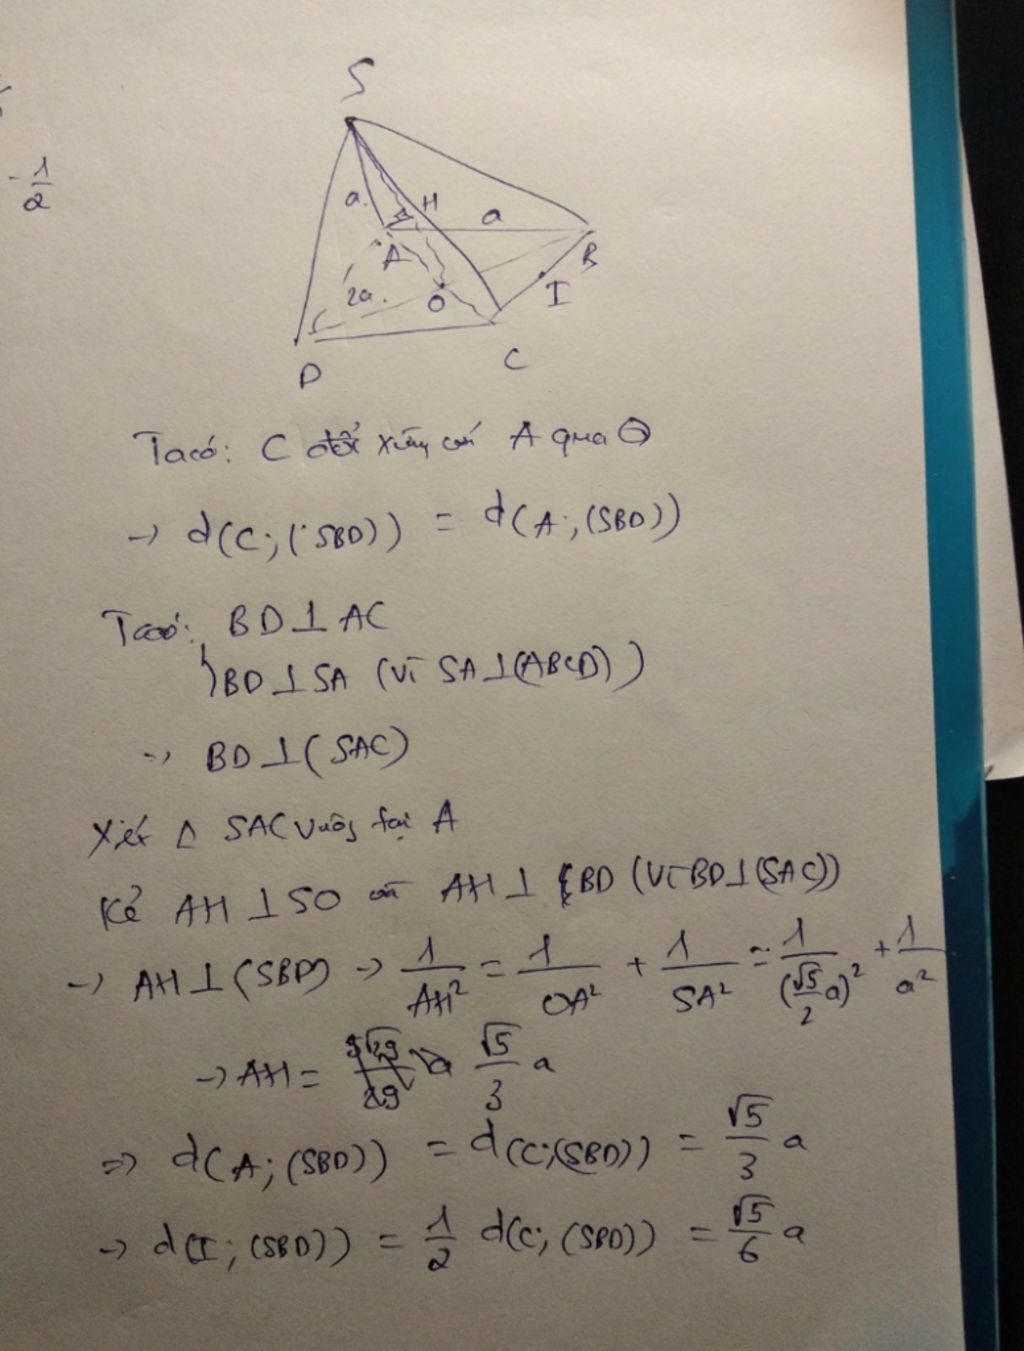 -1/2
S
a H a
A B
2a. O I
D C
Ta có: C đối xứng với A qua O
→ d(C; (SBD)) = d(A; (SBD))
Ta có: BD ⊥ AC
BD ⊥ SA (vì SA ⊥ (ABCD))
→ BD ⊥ (SAC)
Xét Δ SAC vuông tại A
Kẻ AH ⊥ SO AH ⊥ BD (Vì BD ⊥ (SAC))
→ AH ⊥ (SBD) → 1/AH² = 1/OA² + 1/SA² = 1/(√5/2 a)² + 1/a²
→ AH = √5/3 a
⇒ d(A; (SBD)) = d(C; (SBD)) = √5/3 a
→ d(I; (SBD)) = 1/2 d(C; (SBD)) = √5/6 a